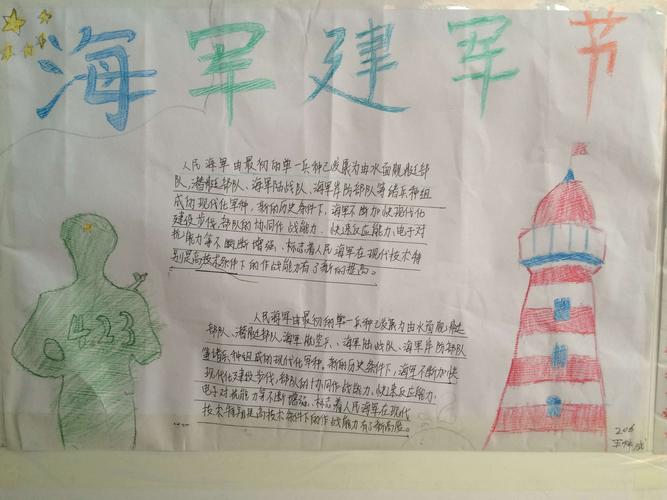 海军建军节
人民海军由最初的单一兵种已发展为由水面舰艇部
队,潜艇部队、海军陆战队、海军岸防部队等诸兵种组
成的现代化军种。新的历史条件下,海军不断加快现代化
建设步伐,部队的协同作战能力、快速反应能力、电子对
抗能力等不断断增强、标志着人民海军在现代技术特
别是高技术条件下的作战能力有了新的提高。
人民海军由最初的单一兵种已发展为由水面舰艇
部队、潜艇部队海军航空兵、海军陆战队、海军岸防部队
等诸兵种组成的现代化军种。新的历史条件下,海军不断加快
现代化建设步伐,部队的协同作战能力、快速反应能力、
电子对抗能力等不断增强、标志着人民海军在现代
技术特别是高技术条件下的作战能力有了新高度。
4.23
206
王